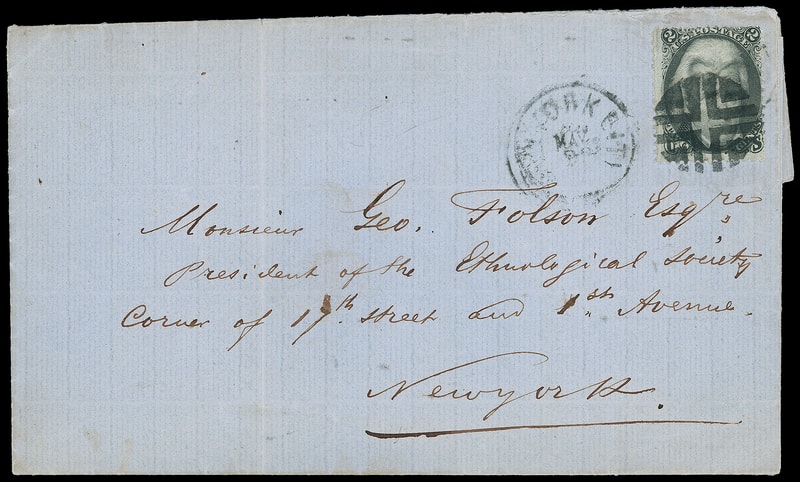 2 U.S. POSTAGE 2
NEW YORK CITY
MAY
Monsieur Geo. Folson Esqre
President of the Ethnological Society
Corner of 17th street and 1st Avenue.
Newyork.